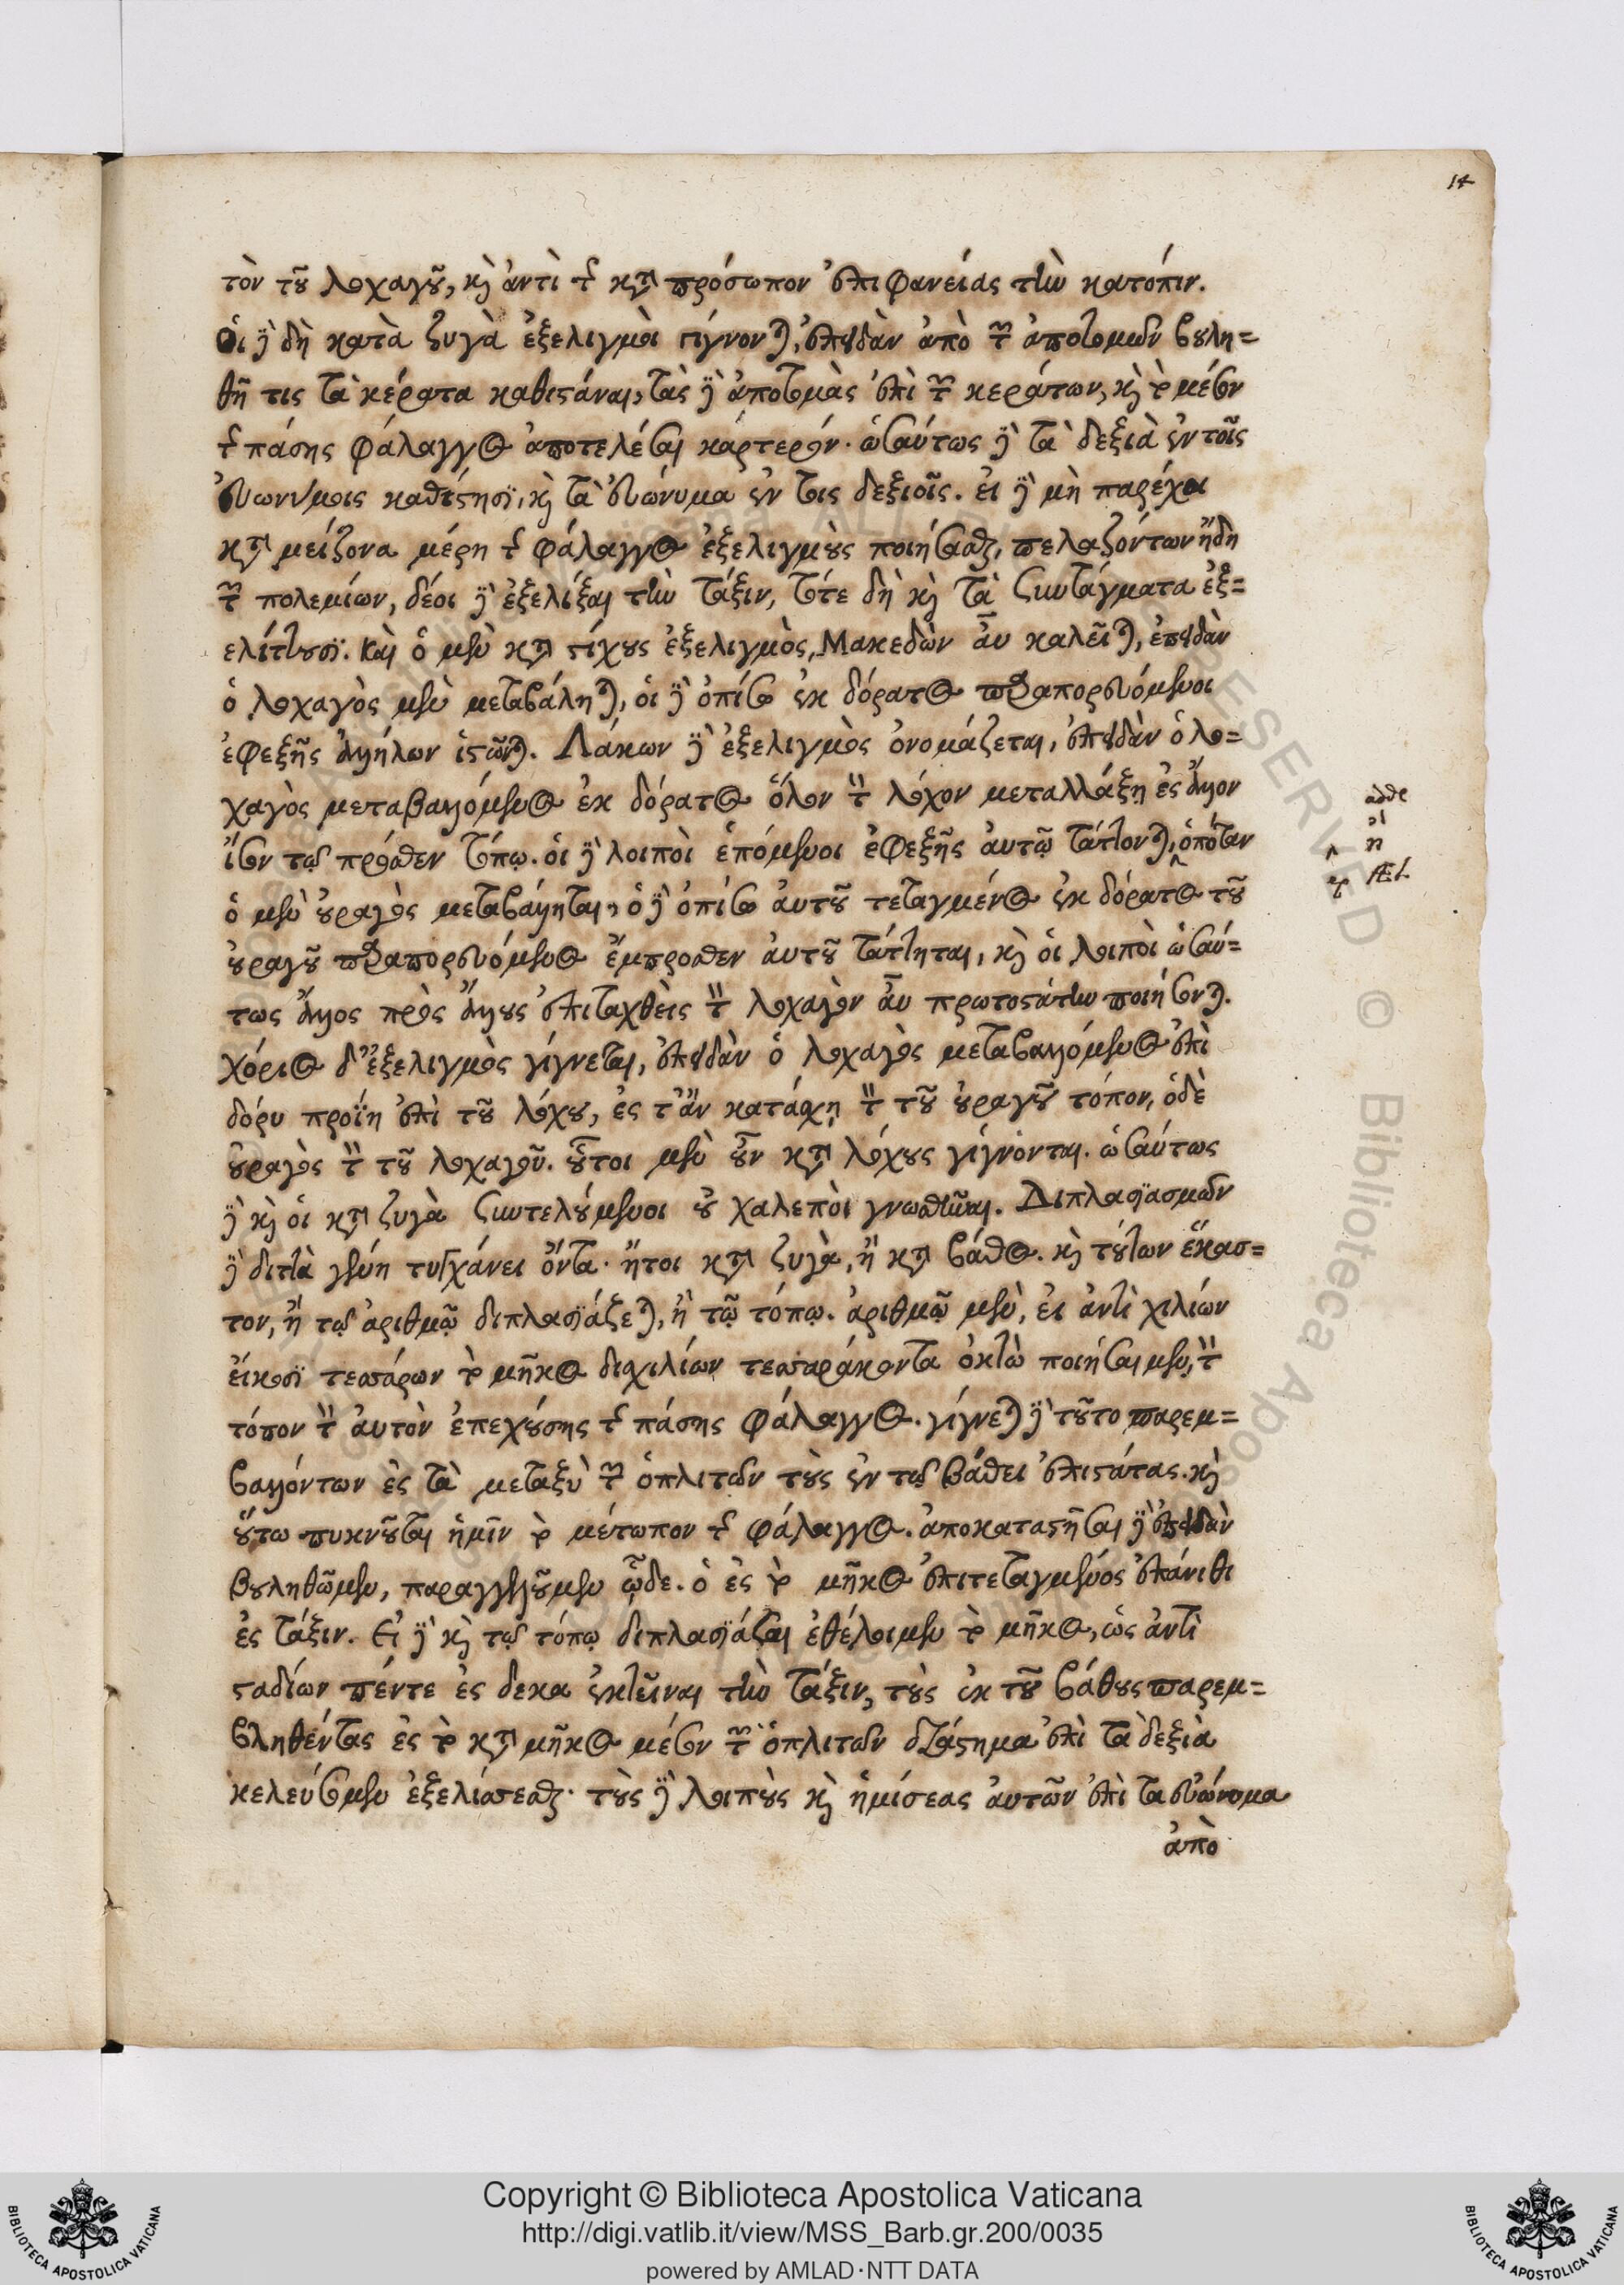 14
τὸν τοῦ λοχαγοῦ, καὶ ἀντὶ τῆς κατὰ πρόσωπον ἐπιφανείας τὴν κατόπιν.
Οἱ δὲ δὴ κατὰ ζυγὰ ἐξελιγμοὶ γίγνονται, ἐπειδὰν ἀπὸ τῶν ἀποτομῶν βουλη=
θῆ τις τὰ κέρατα καθιστάναι, τὰς δὲ ἀποτομὰς ἐπὶ τῶν κεράτων, καὶ τὸ μέσον
τῆς πάσης φάλαγγος ἀποτελέσαι κάρτερόν. ὡσαύτως δὲ τὰ δεξιὰ ἐν τοῖς
εὐωνύμοις καθίστησϊ, καὶ τὰ εὐώνυμα ἐν τοις δεξιοῖς. ἐι δὲ μὴ παρέχοι
κατὰ μείζονα μέρη τῆς φάλαγγος ἐξελιγμοὺς ποιήσασθαι, πελαζόντων ἤδη
τῶν πολεμίων, δέοι δὲ ἐξελίξαι τὴν τάξιν, τότε δὴ καὶ τὰ συντάγματα ἐξ=
ελίττουσϊ. Καὶ ὁ μὲν κατὰ στίχους ἐξελιγμὸς, Μακεδὼν ἂν καλεῖται, ἐπειδὰν
ὁ λοχαγὸς μὲν μεταβάληται, ὁι δὲ ὀπίσω ἐκ δόρατος παραπορευόμενοι
ἐφεξῆς ἀλλήλων ἱστῶνται. Λάκων δὲ ἐξελιγμὸς ὀνομάζεται, ἐπειδὰν ὁ λο=
χαγὸς μεταβαλλόμενος ἐκ δόρατος ὅλον τὸν λόχον μεταλλάξῃ ἐς ἄλλον
ἴσον τῷ πρόσθεν τόπῳ. ὁι δὲ λοιποὶ ἑπόμενοι ἐφεξῆς ἀυτῷ τάττονται, ὁπόταν
ὁ μὲν οὐραγὸς μεταβάλληται, ὁ δὲ ὀπίσω ἀυτοῦ τεταγμένος ἐκ δόρατος τοῦ
οὐραγοῦ παραπορευόμενος ἔμπροσθεν ἀυτοῦ τάττηται, καὶ ὁι λοιποὶ ὡσαύ=
τως ἄλλος πρὸς ἄλλους ἐπιταχθεὶς τὸν λοχαγὸν ἂν πρωτοστάτην ποιήσονται.
Χόριος δ' ἐξελιγμὸς γίγνεται, ἐπειδὰν ὁ λοχαγὸς μεταβαλλόμενος ἐπὶ
δόρυ προΐη ἐπὶ τοῦ λόχου, ἐς τ' ἂν κατάσχῃ τὸν τοῦ οὐραγοῦ τόπον, ὁδὲ
οὐραγὸς τὸν τοῦ λοχαγοῦ. οὗτοι μὲν οὖν κατὰ λόχους γίγνονται. ὡσαύτως
δὲ καὶ ὁι κατὰ ζυγὰ συντελούμενοι οὐ χαλεποὶ γνωσθῆναι. Διπλασϊασμῶν
δὲ διττὰ γένη τυγχάνει ὄντα· ἤτοι κατὰ ζυγὰ, ἢ κατὰ βάθος. καὶ τούτων ἕκασ=
τον, ἢ τῷ ἀριθμῷ διπλασϊάζεται, ἢ τῷ τόπῳ. ἀριθμῷ μὲν, ἐι ἀντὶ χιλίων
ἐίκοσϊ τεσσάρων τὸ μῆκος διχιλίων τεσσαράκοντα ὀκτὼ ποιήσαιμεν, τὸν
τόπον τὸν ἀυτὸν ἐπεχούσης τῆς πάσης φάλαγγος. γίγνεται δὲ τοῦτο παρεμ=
βαλλόντων ἐς τὰ μεταξὺ τῶν ὁπλιτῶν τοὺς ἐν τῷ βάθει ἐπιστάτας. καὶ
οὕτω πυκνοῦται ἡμῖν τὸ μέτωπον τῆς φάλαγγος. ἀποκαταστῆσαι δὲ ἐπειδὰν
βουληθῶμεν, παραγγελλοῦμεν ὧδε. ὁ ἐς τὸ μῆκος ἐπιτεταγμένος ἐπάνιθι
ἐς τάξιν. Εἰ δὲ καὶ τῷ τόπῳ διπλασϊάσαι ἐθέλοιμεν τὸ μῆκος, ὡς ἀντὶ
σταδίων πέντε ἐς δεκα ἐκτεῖναι τὴν τάξιν, τοὺς ἐκ τοῦ βάθους παρεμ=
βληθέντας ἐς τὸ κατὰ μῆκος μέσον τῶν ὁπλιτῶν διάστημα ἐπὶ τὰ δεξιὰ
κελεύσομεν ἐξελίσσεσθαι· τοὺς δὲ λοιποὺς καὶ ἡμίσεας ἀυτῶν ἐπὶ τα εὐώνυμα
ἀπὸ
adde
Copyright © Biblioteca Apostolica Vaticana
http://digi.vatlib.it/view/MSS_Barb.gr.200/0035
powered by AMLAD·NTT DATA
BIBLIOTECA APOSTOLICA VATICANA
BIBLIOTECA APOSTOLICA VATICANA